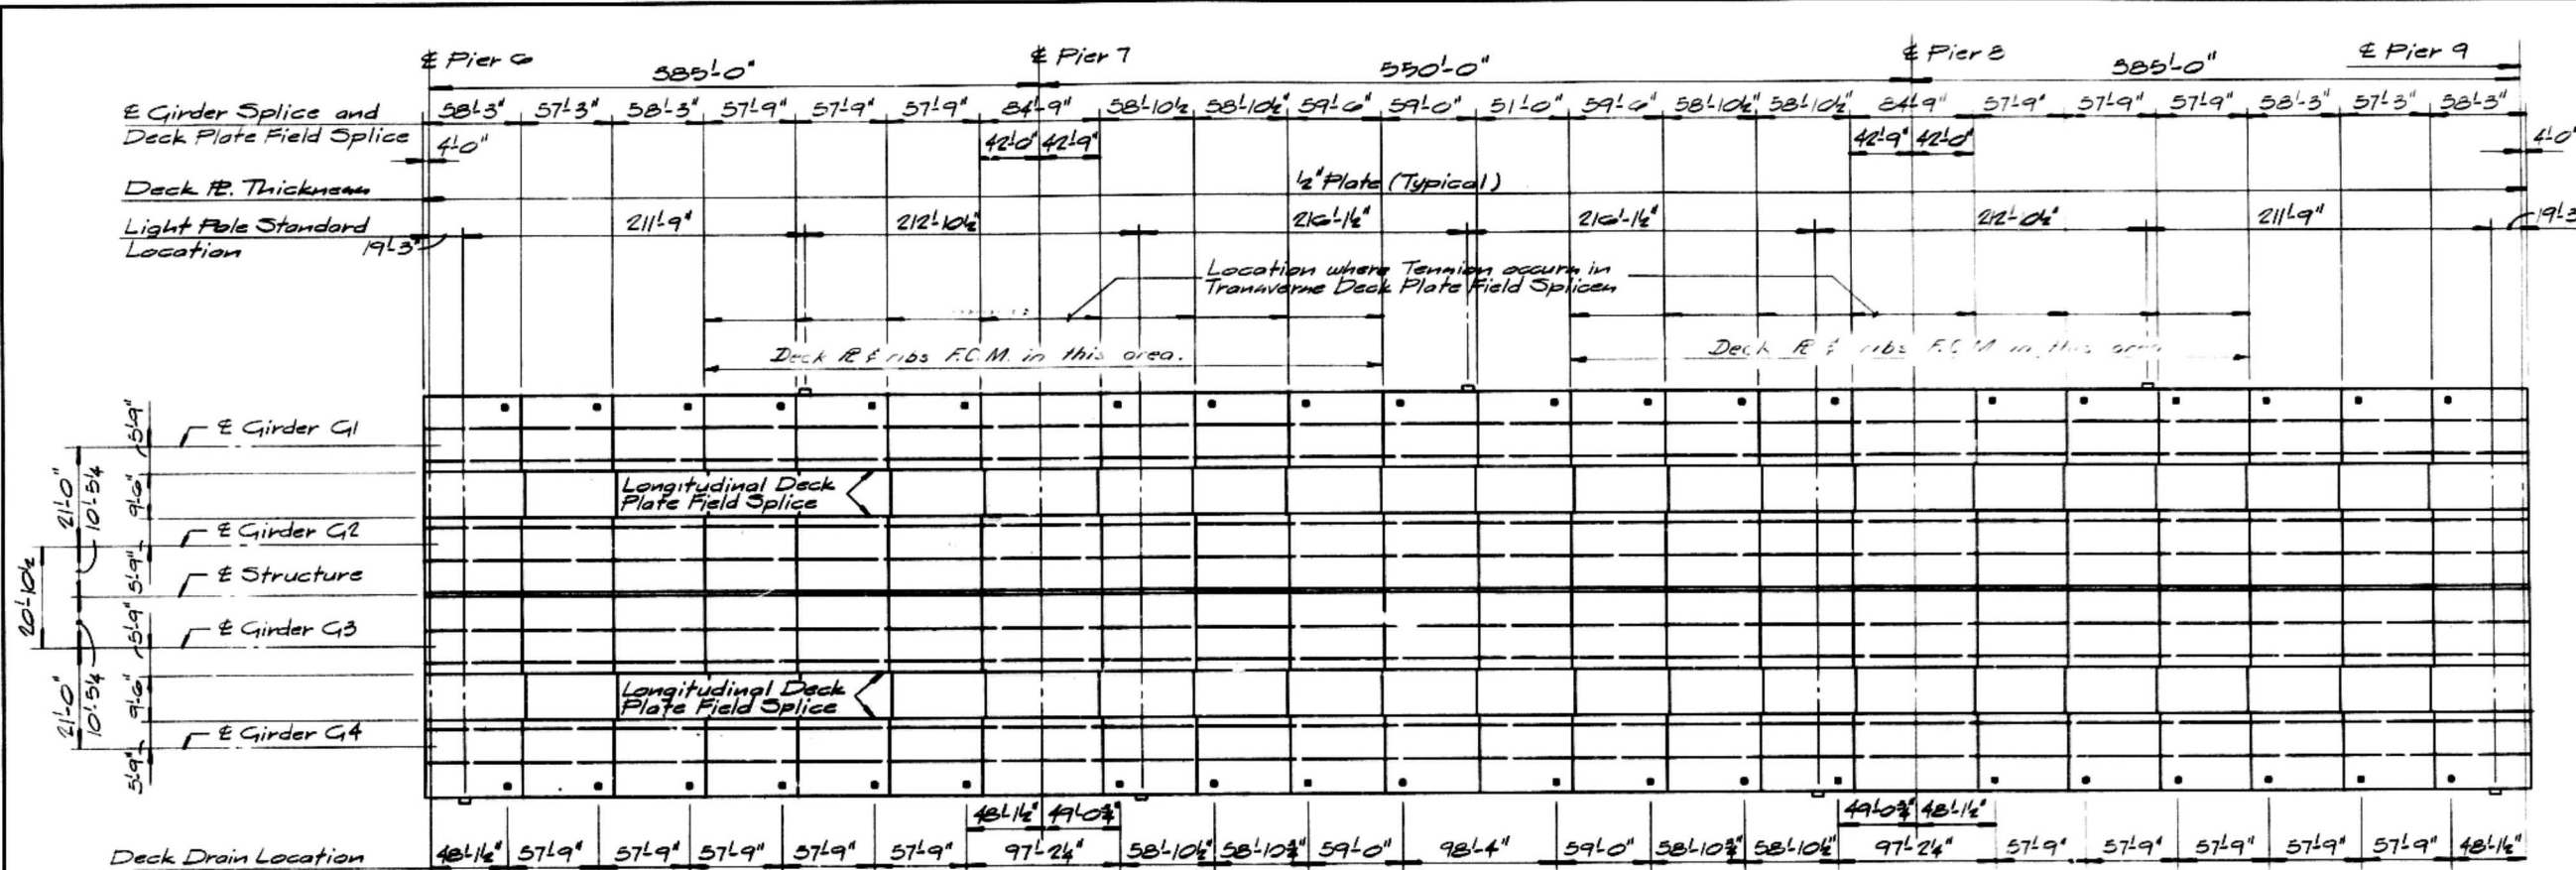 ℄ Pier 6
℄ Pier 7
℄ Pier 8
℄ Pier 9
385'-0" 550'-0" 385'-0"
℄ Girder Splice and
Deck Plate Field Splice
58'-3" 57'-3" 58'-3" 57'-9" 57'-9" 57'-9" 84'-9" 58'-10½ 58'-10½" 59'-6" 59'-0" 51'-0" 59'-6" 58'-10½" 58'-10½" 84'-9" 57'-9" 57'-9" 57'-9" 58'-3" 57'-3" 58'-3"
4'-0" 42'-0" 42'-9" 42'-9" 42'-0" 4'-0"
Deck ℄. Thickness
½" Plate (Typical)
Light Pole Standard
Location
19'-3" 211'-9" 212'-10½" 216'-1½" 216'-1½" 212'-10½" 211'-9" 19'-3
Location where Tension occurs in
Transverse Deck Plate Field Splices
Deck ℄ & ribs F.C.M. in this area.
Deck ℄ & ribs F.C.M in this area
℄ Girder G1
℄ Girder G2
℄ Structure
℄ Girder G3
℄ Girder G4
5'-9"
21'-0"
10'-5¼
9'-6"
5'-9"
20'-10½
5'-9"
21'-0"
10'-5¼
9'-6"
5'-9"
Longitudinal Deck
Plate Field Splice
Longitudinal Deck
Plate Field Splice
48'-1½" 49'-0¾" 49'-0¾" 48'-1½"
Deck Drain Location
48'-1½" 57'-9" 57'-9" 57'-9" 57'-9" 57'-9" 97'-2¼" 58'-10½" 58'-10¾" 59'-0" 98'-4" 59'-0" 58'-10¾" 58'-10½" 97'-2¼" 57'-9" 57'-9" 57'-9" 57'-9" 57'-9" 48'-1½"